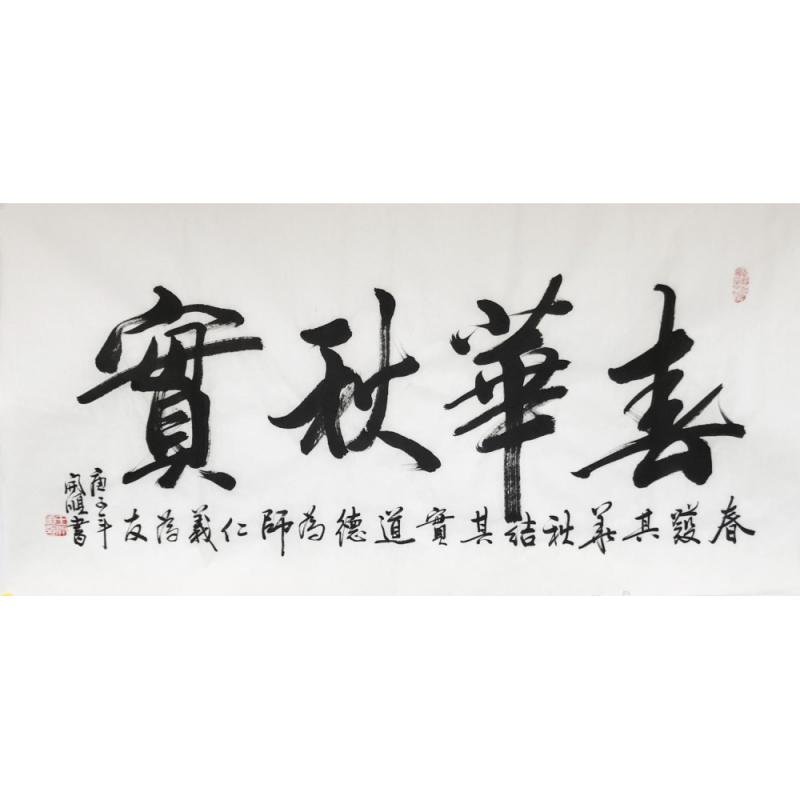 春華秋實
春發其華秋結其實道德為師仁義為友
庚子年
書